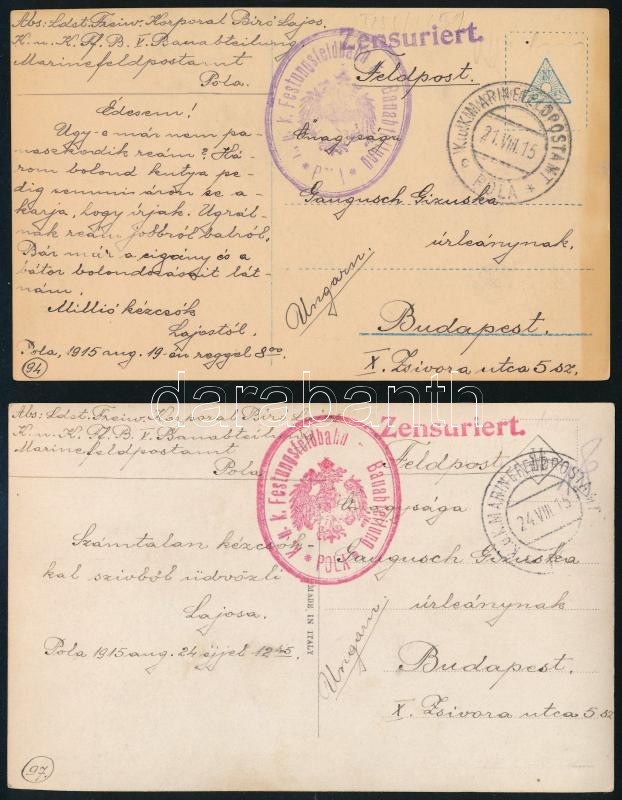 Abs: Ldst. Freiw. Korporal Biró Lajos.
K. u. K. Ff. B. V. Bauabteilung
Marinefeldpostamt
Pola.
Zensuriert.
Feldpost.
K. u. k. Festungsfeldbahn - Bauabteilung
* POLA *
K.u.K. MARINEFELDPOSTAMT
21.VIII.15
* POLA *
Édesem!
Úgy-e már nem pa-
naszkodik reám? Há-
rom bolond kutya pe-
dig semmi áron se a-
karja, hogy írjak. Ugrál-
nak reám jobbról balról.
Bár már a cigány és a
bátor bolondozásait lát-
nám.
Millió kézcsók
Lajostól.
Pola, 1915 aug. 19-én reggel 8 00.
94
Őnagysága
Gaugusch Gizuska
úrleánynak.
Ungarn.
Budapest.
X. Zsivora utca 5 sz.
darabanth
Abs: Ldst. Freiw. Korporal Biró Lajos
K. u. K. Ff. B. V. Bauabteilung
Marinefeldpostamt
Pola
Zensuriert.
Feldpost
K. u. k. Festungsfeldbahn - Bauabteilung
* POLA *
K.u.K. MARINEFELDPOSTAMT
24.VIII.15
Számtalan kézcsók-
kal szívből üdvözli
Lajosa.
Pola 1915 aug. 24 éjjel 12 45.
97.
MADE IN ITALY
Őnagysága
Gaugusch Gizuska
úrleánynak
Ungarn
Budapest.
X. Zsivora utca 5 sz